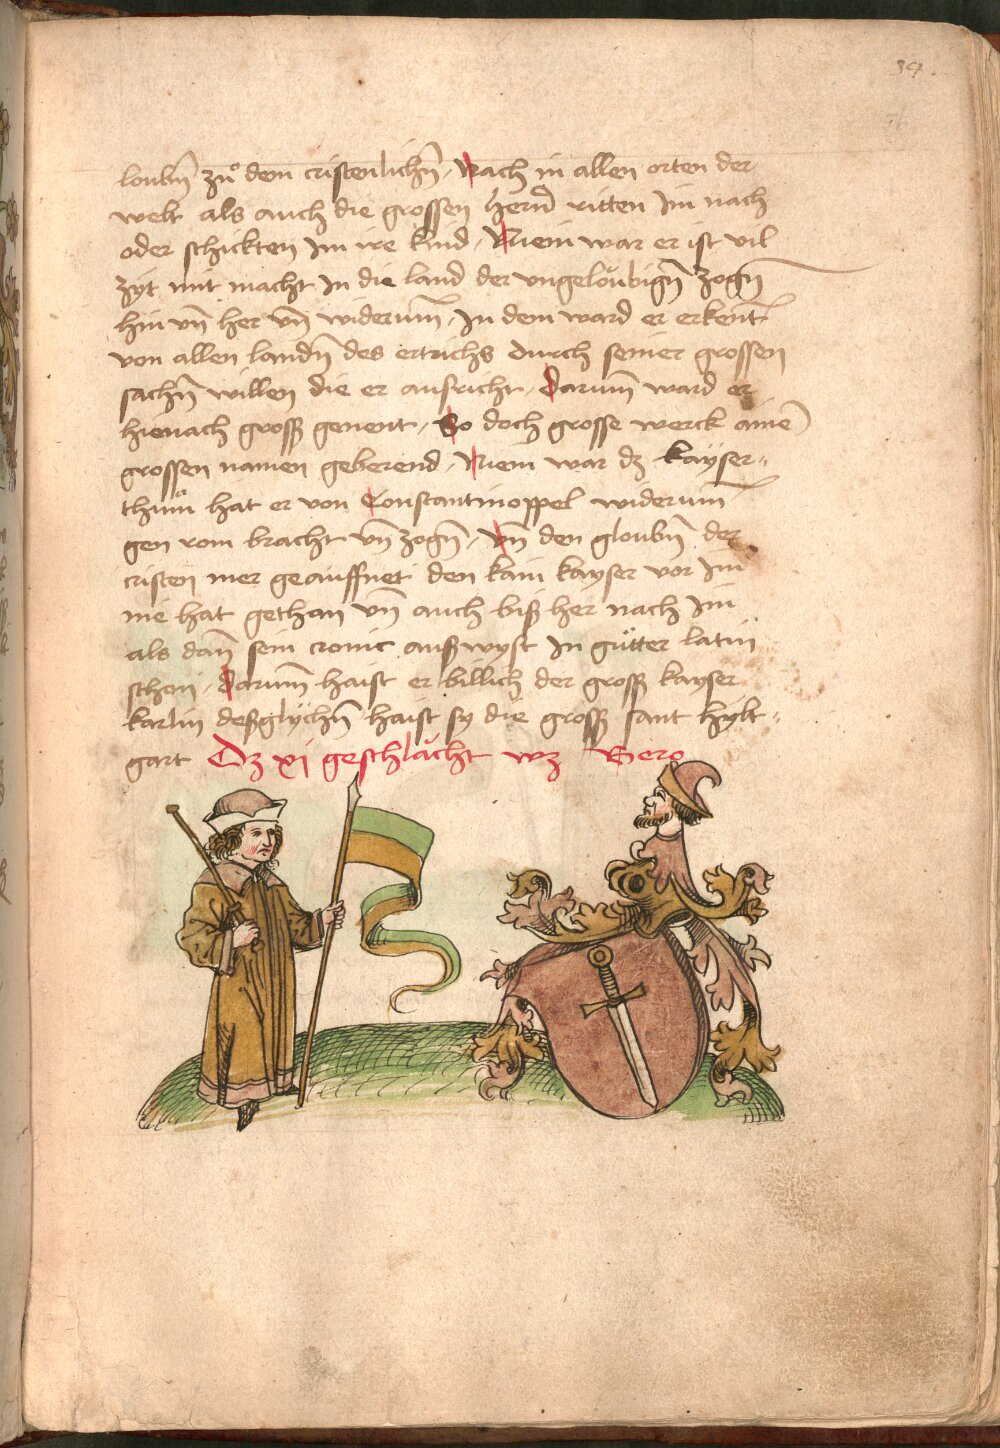 39.
loubñ zuͦ dem cristenlichñ, Nach in allen orten der
welt als auch die grossen hern̄ ritten Im nach
oder schickten Im ire kind, Niem war er ist vil
zyt mit macht In die land der vngeloͤubigñ zogñ
hin vn̄ her vn̄ widerum̄, In dem ward er erkent
von allen landñ des ertrichs durch seiner grossen
sachñ willen die er ausricht, Darum̄ ward er
hienach groß genent, So doch grosse werck ainē
grossen namen geberend, Niem war dz kaÿser„
thum̊ hat er von Constantinoppel widerum̄
gen rom bracht vn̄ zogñ, Vn̄ den gloubñ der
cristen mer geauffnet den kain kayser vor Im
nie hat gethan vn̄ auch biß her nach Im
als dan̄ sein cronic außwyst In guͤtter latin
schen, Darum̄ haist er billich der groß kayser
karlin deßglychñ haist sy die groß sant hylt„
gart Dz xi geschlaͤcht wz Gero